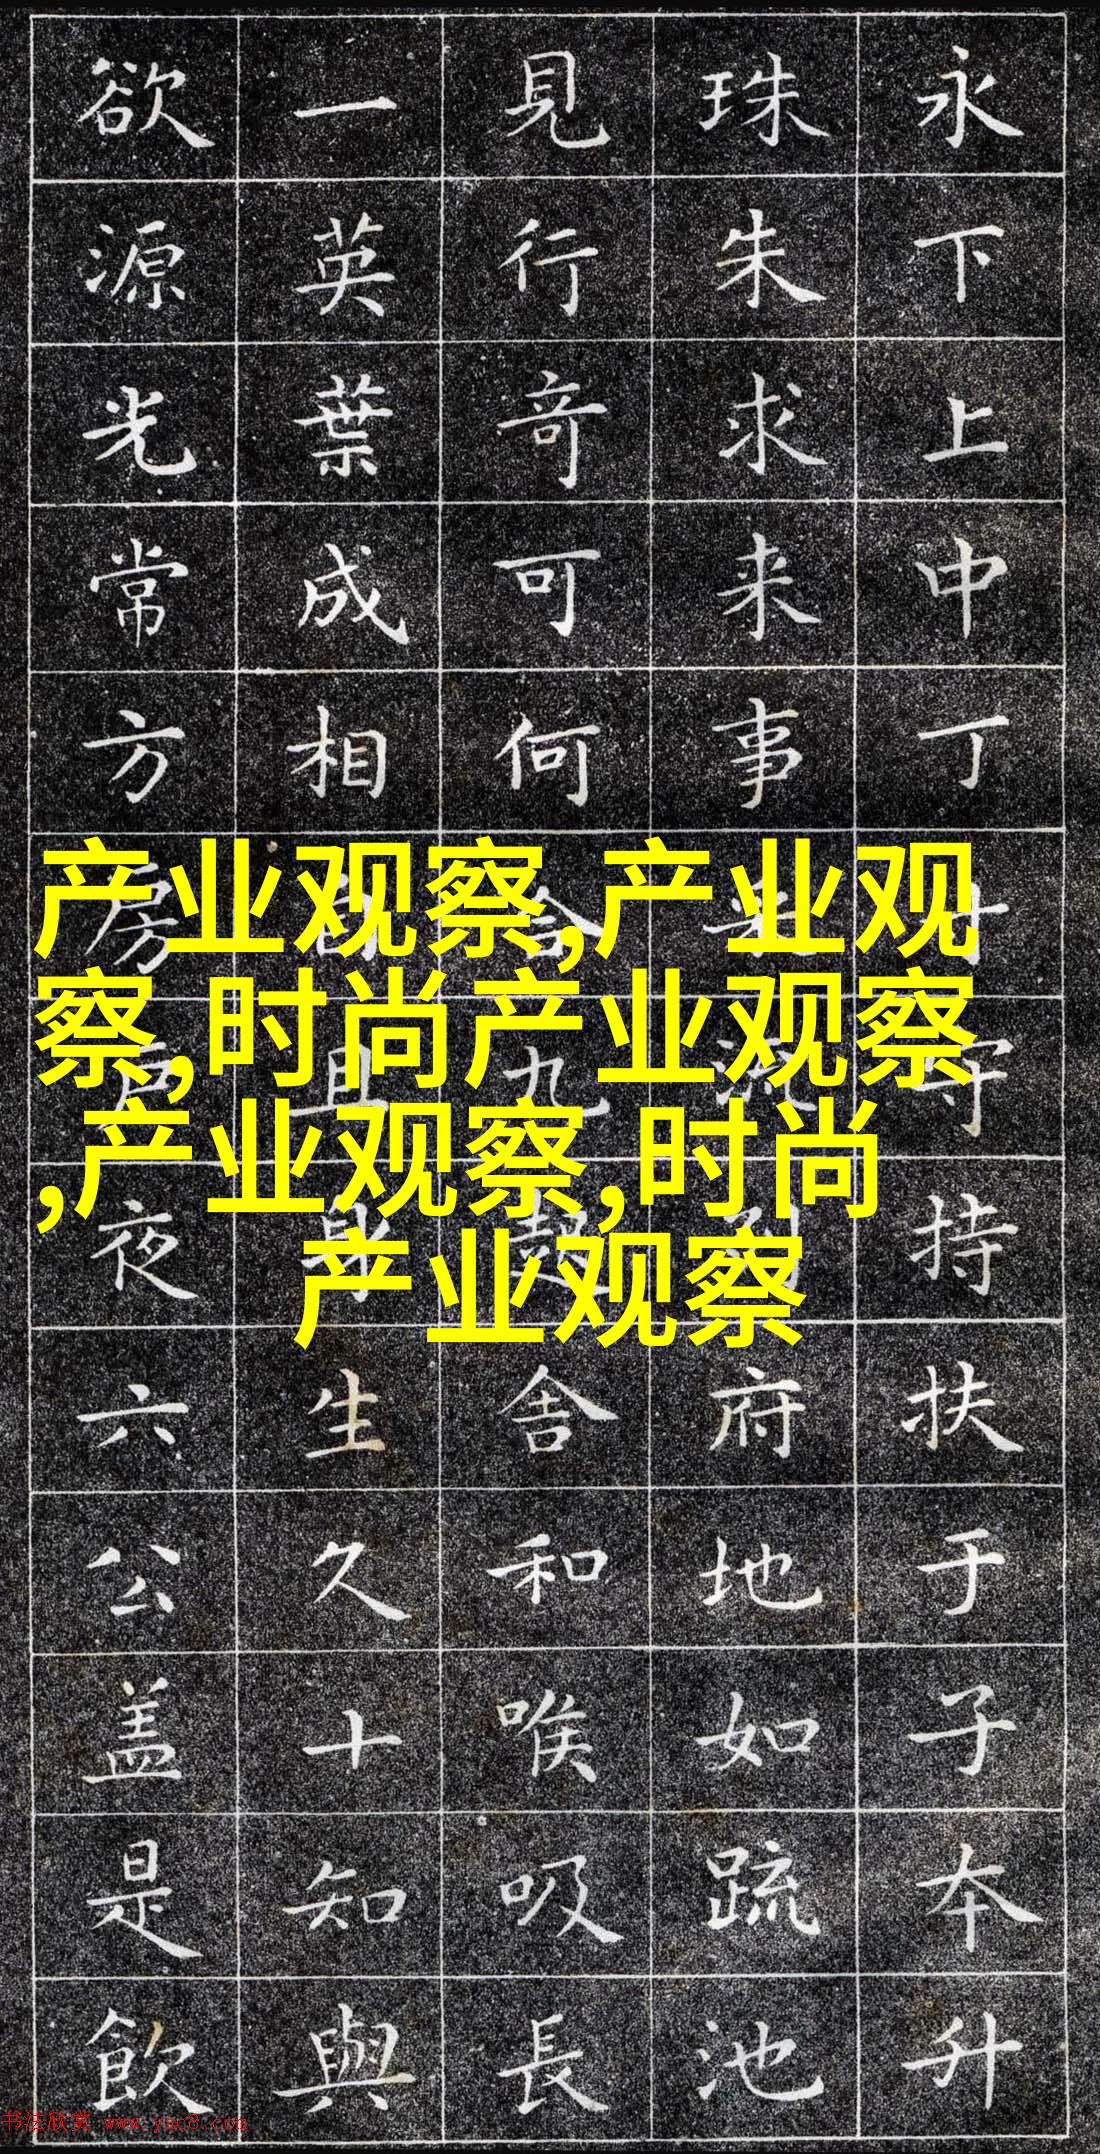 永下上中丁守持扶于子本升
珠朱求来事府地如疏池
見行奇可何九舍和喉吸長
一英葉成相且生久十知與
欲源光常方房夜六公盖是飲
产业观察,产业观
察,时尚产业观察
,产业观察,时尚
产业观察
书法欣赏 www.yac8.com